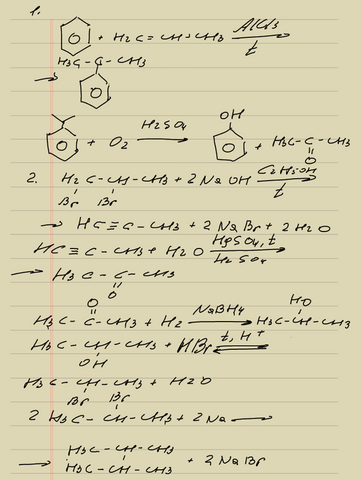 1.
+ H2C = CH - CH3 AlCl3 t
→ H3C - CH - CH3
+ O2 H2SO4 OH + H3C - C - CH3 O
2. H2C - CH - CH3 + 2 NaOH C2H5OH t
Br Br
→ HC ≡ C - CH3 + 2 NaBr + 2 H2O
HC ≡ C - CH3 + H2O HgSO4, t H2SO4
→ H3C - C - CH3
O
O HO
H3C - C - CH3 + H2 NaBH4 H3C - CH - CH3
H3C - CH - CH3 + HBr t, H+
OH
H3C - CH - CH3 + H2O
Br Br
2 H3C - CH - CH3 + 2 Na →
H3C - CH - CH3
→ H3C - CH - CH3 + 2 NaBr